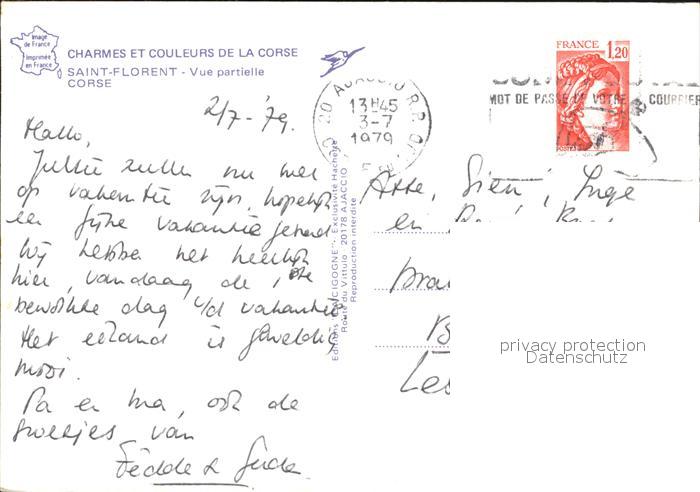 Image
de France
Imprimée
en France
CHARMES ET COULEURS DE LA CORSE
SAINT-FLORENT - Vue partielle
CORSE
2/7-'79.
Hallo,
Jullie zullen nu wel
op vakantie zijn, hopelijk
een fijne vakantie gehad
Wij hebben het heerlijk
hier, vandaag de 1ste
bewolkte dag v/d vakantie.
Het eiland is geweldig
mooi.
Pa en ma, ook de
groetjes van
Fedde &
Editions "LA CIGOGNE" - Exclusivité Hachette
Route du Vittulo - 20178 AJACCIO
Reproduction interdite
20 AJACCIO R.P.
13H45
3-7
1979
FRANCE 1,20
POSTES
MOT DE PASSE DE VOTRE COURRIER
Atte, Sien, Inge
en
privacy protection
Datenschutz